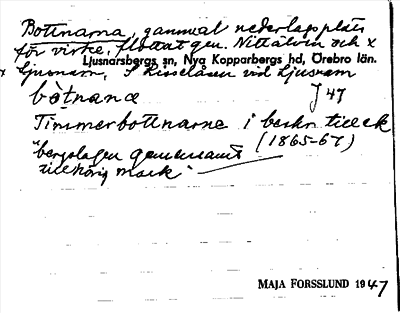 Bottnarna, gammal nederlagsplats
för virke, flottat gen. Nittälven och x
Ljusnarsbergs sn, Nya Kopparbergs hd, Örebro län.
x Ljusnarn, S Lisselåsen vid Ljusnarn
bòtnanα J 47
Timmerbottnarne i beskr. till ek
(1865-67)
"bergslagen gemensamt
tillhörig mark"
MAJA FORSSLUND 1947